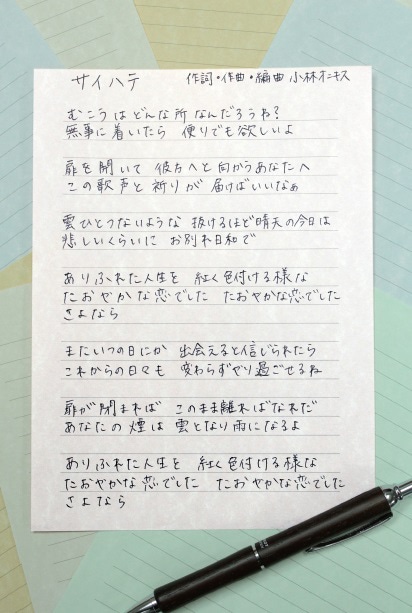 サイハテ 作詞・作曲・編曲 小林オニキス
むこうはどんな所なんだろうね?
無事に着いたら 便りでも欲しいよ
扉を開いて 彼方へと向かうあなたへ
この歌声と祈りが 届けばいいなぁ
雲ひとつないような 抜けるほど晴天の今日は
悲しいくらいに お別れ日和で
ありふれた人生を 紅く色付ける様な
たおやかな恋でした たおやかな恋でした
さよなら
またいつの日にか 出会えると信じられたら
これからの日々も 変わらずやり過ごせるね
扉が閉まれば このまま離ればなれだ
あなたの煙は 雲となり雨になるよ
ありふれた人生を 紅く色付ける様な
たおやかな恋でした たおやかな恋でした
さよなら